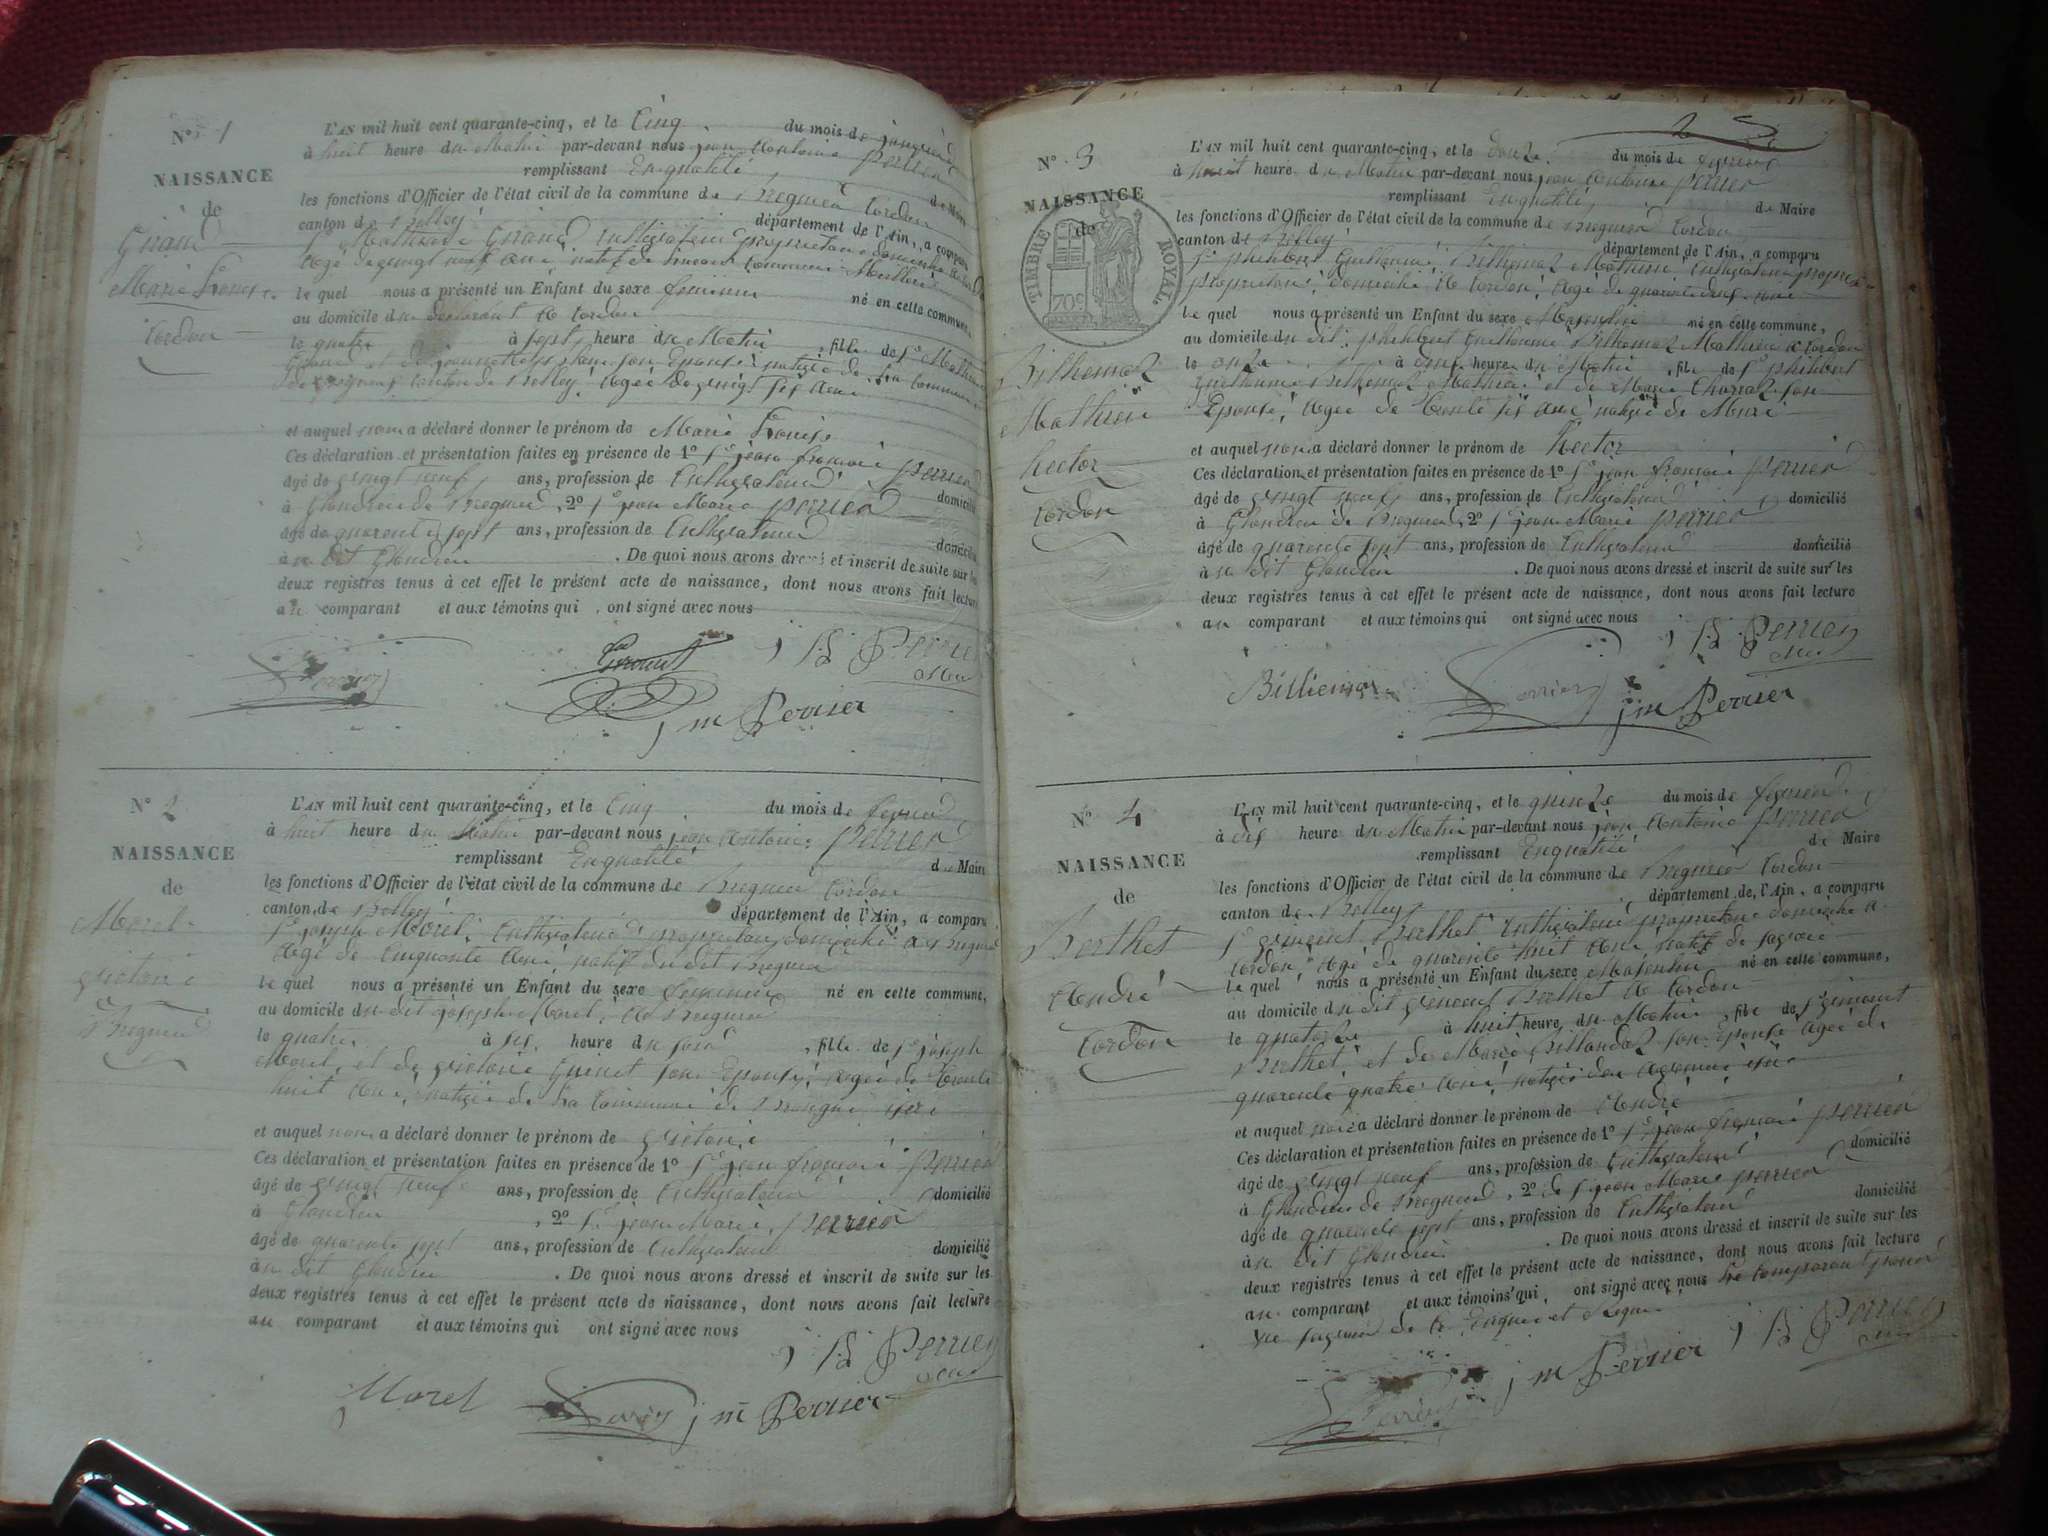 N° 1
NAISSANCE
de
Marie
Cordon
L'AN mil huit cent quarante-cinq, et le Cinq du mois de janvier
à huit heure du Matin par-devant nous jean Antoine Perrier
remplissant En qualité de Maire
les fonctions d'Officier de l'état civil de la commune de Bregnier Cordon
canton de Belley département de l'Ain, a comparu
le quel nous a présenté un Enfant du sexe feminin né en cette commune,
au domicile du déclarant à Cordon
le quatre à sept heure du Matin , fille de
et auquel nous a déclaré donner le prénom de Marie
Ces déclaration et présentation faites en présence de 1° Sr jean françois Perrier
âgé de vingt neuf ans, profession de Cultivateur domicilié
à Glandieu de Bregnier, 2° Sr jean Marie Perrier
âgé de quarente sept ans, profession de Cultivateur domicilié
à du dit Glandieu . De quoi nous avons dressé et inscrit de suite sur les
deux registres tenus à cet effet le présent acte de naissance, dont nous avons fait lecture
au comparant et aux témoins qui ont signé avec nous
Perrier
j m Perrier
N° 2
NAISSANCE
de
Morel
victorie
Bregnier
L'AN mil huit cent quarante-cinq, et le Cinq du mois de fevrier
à huit heure du Matin par-devant nous jean Antoine Perrier
remplissant En qualité de Maire
les fonctions d'Officier de l'état civil de la commune de Bregnier Cordon
canton de Belley département de l'Ain, a comparu
Sr joseph Morel, Cultivateur proprietaire domicilié à Bregnier
Agé de Cinquante Ans, natif du dit Bregnier
le quel nous a présenté un Enfant du sexe feminin né en cette commune,
au domicile du dit joseph Morel, à Bregnier
le quatre à six heure du soir , fille de Sr joseph
Morel, et de victorie Guinet son Epouse, Agée de trente
huit Ans, native de la Commune de
et auquel nous a déclaré donner le prénom de victorie
Ces déclaration et présentation faites en présence de 1° Sr jean françois Perrier
âgé de vingt neuf ans, profession de Cultivateur domicilié
à Glandieu , 2° Sr jean Marie Perrier
âgé de quarente sept ans, profession de Cultivateur domicilié
à du dit Glandieu . De quoi nous avons dressé et inscrit de suite sur les
deux registres tenus à cet effet le présent acte de naissance, dont nous avons fait lecture
au comparant et aux témoins qui ont signé avec nous
Perrier
Morel j m Perrier
N° 3
NAISSANCE
de
TIMBRE ROYAL
70c
Mathieu
hector
Cordon
L'AN mil huit cent quarante-cinq, et le douze du mois de fevrier
à huit heure du Matin par-devant nous jean Antoine Perrier
remplissant En qualité de Maire
les fonctions d'Officier de l'état civil de la commune de Bregnier Cordon
canton de Belley département de l'Ain, a comparu
proprietaire, domicilié à Cordon, Agé de
le quel nous a présenté un Enfant du sexe Masculin né en cette commune,
au domicile du dit philibert Guillaume Mathieu à Cordon
le onze à heure du Matin , fils de Sr philibert
Epouse, Agée de trente six Ans native de
et auquel nous a déclaré donner le prénom de hector
Ces déclaration et présentation faites en présence de 1° Sr jean françois Perrier
âgé de vingt neuf ans, profession de Cultivateur domicilié
à Glandieu de Bregnier, 2° Sr jean Marie Perrier
âgé de quarente sept ans, profession de Cultivateur domicilié
à du dit Glandieu . De quoi nous avons dressé et inscrit de suite sur les
deux registres tenus à cet effet le présent acte de naissance, dont nous avons fait lecture
au comparant et aux témoins qui ont signé avec nous
Perrier
j m Perrier
N° 4
NAISSANCE
de
Berthet
André
Cordon
L'AN mil huit cent quarante-cinq, et le quinze du mois de fevrier
à dix heure du Matin par-devant nous jean Antoine Perrier
remplissant En qualité de Maire
les fonctions d'Officier de l'état civil de la commune de Bregnier Cordon
canton de Belley département de l'Ain, a comparu
Sr vincent Berthet Cultivateur proprietaire domicilié à
Cordon, Agé de quarente huit Ans natif de
le quel nous a présenté un Enfant du sexe Masculin né en cette commune,
au domicile du dit vincent Berthet à Cordon
le quatorze à huit heure du Matin , fils de Sr vincent
Berthet, et de Marie son Epouse Agée de
quarente quatre Ans, native
et auquel nous a déclaré donner le prénom de André
Ces déclaration et présentation faites en présence de 1° Sr jean françois Perrier
âgé de vingt neuf ans, profession de Cultivateur domicilié
à Glandieu de Bregnier, 2° de Sr jean Marie Perrier
âgé de quarente sept ans, profession de Cultivateur domicilié
à du dit Glandieu . De quoi nous avons dressé et inscrit de suite sur les
deux registres tenus à cet effet le présent acte de naissance, dont nous avons fait lecture
au comparant et aux témoins qui ont signé avec nous
de ce Enquis et Requis
Perrier
j m Perrier